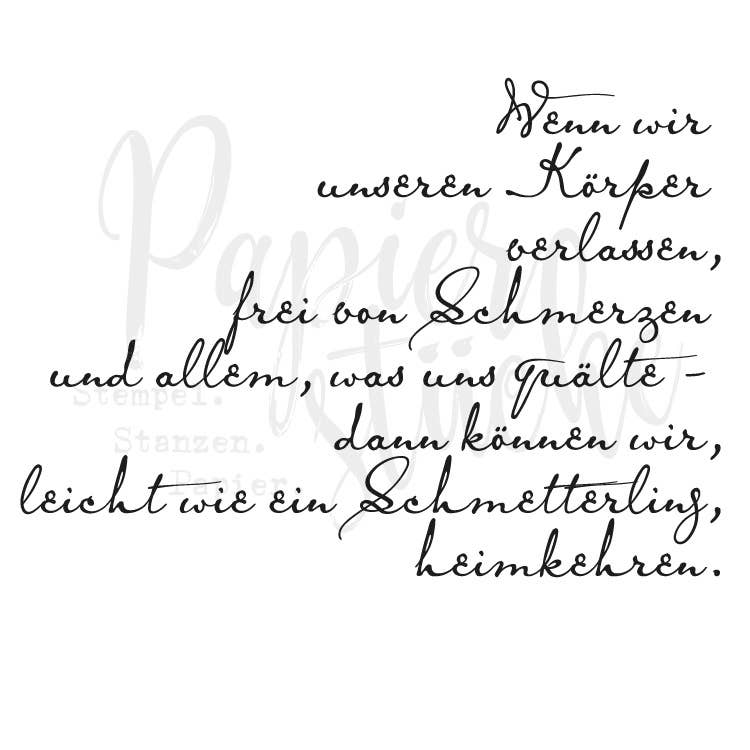 Wenn wir
unseren Körper
verlassen,
frei von Schmerzen
und allem, was uns quälte -
dann können wir,
leicht wie ein Schmetterling,
heimkehren.
Papier
Stücke
Stempel.
Stanzen.
Papier